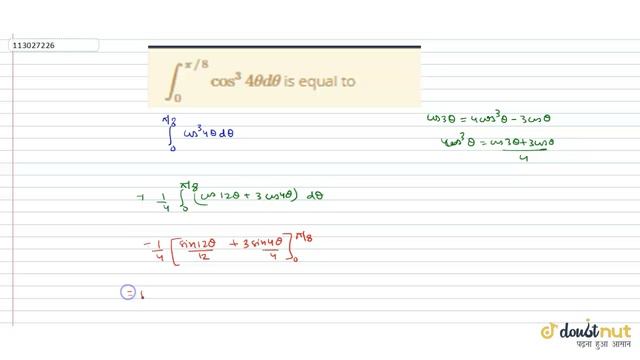 113027226
∫₀^{π/8} cos³ 4θdθ is equal to
∫₀^{π/8} cos³4θ dθ
cos3θ = 4cos³θ - 3cosθ
4cos³θ = cos3θ + 3cosθ / 4
1/4 ∫₀^{π/8} (cos 12θ + 3 cos4θ) dθ
1/4 [ sin12θ/12 + 3 sin4θ/4 ]₀^{π/8}
=
doubtnut
पढ़ना हुआ आसान